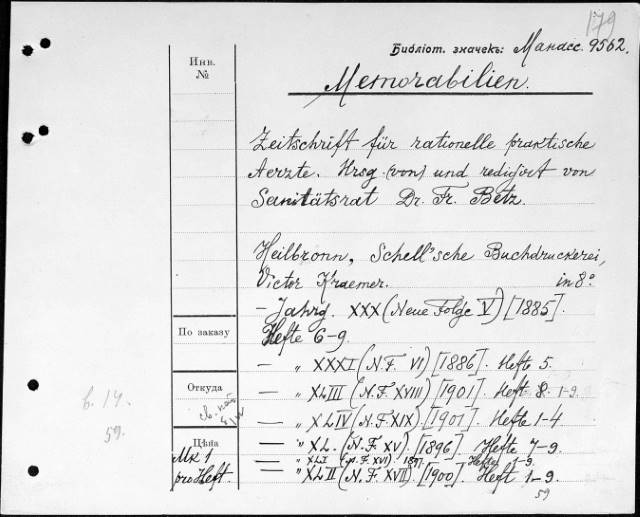 179
Библіот. значекъ: Манасс. 9562.
Инв.
№
Memorabilien.
Zeitschrift für rationelle praktische
Aerzte. Hrsg. (von) und redigirt von
Sanitätsrat Dr. Fr. Betz.
Heilbronn, Schell'sche Buchdruckerei,
Victor Kraemer. in 8º
— Jahrg. XXX (Neue Folge V) [1885].
Hefte 6-9.
По заказу
— " XXXI (N.F. VI) [1886]. Hefte 5.
Откуда
— " XLIII (N.F. XVIII) [1901]. Heft 8. 1-9.
— " XLIV (N.F. XIX) [1901]. Hefte 1-4
Цѣна
Mk 1
pro Heft.
— " XL. (N.F. XV) [1896]. Hefte 7-9.
— " XLI (N.F. XVI). 1897. Hefte 1-9.
— " XLII (N.F. XVII). [1900]. Heft 1-9
59
59.